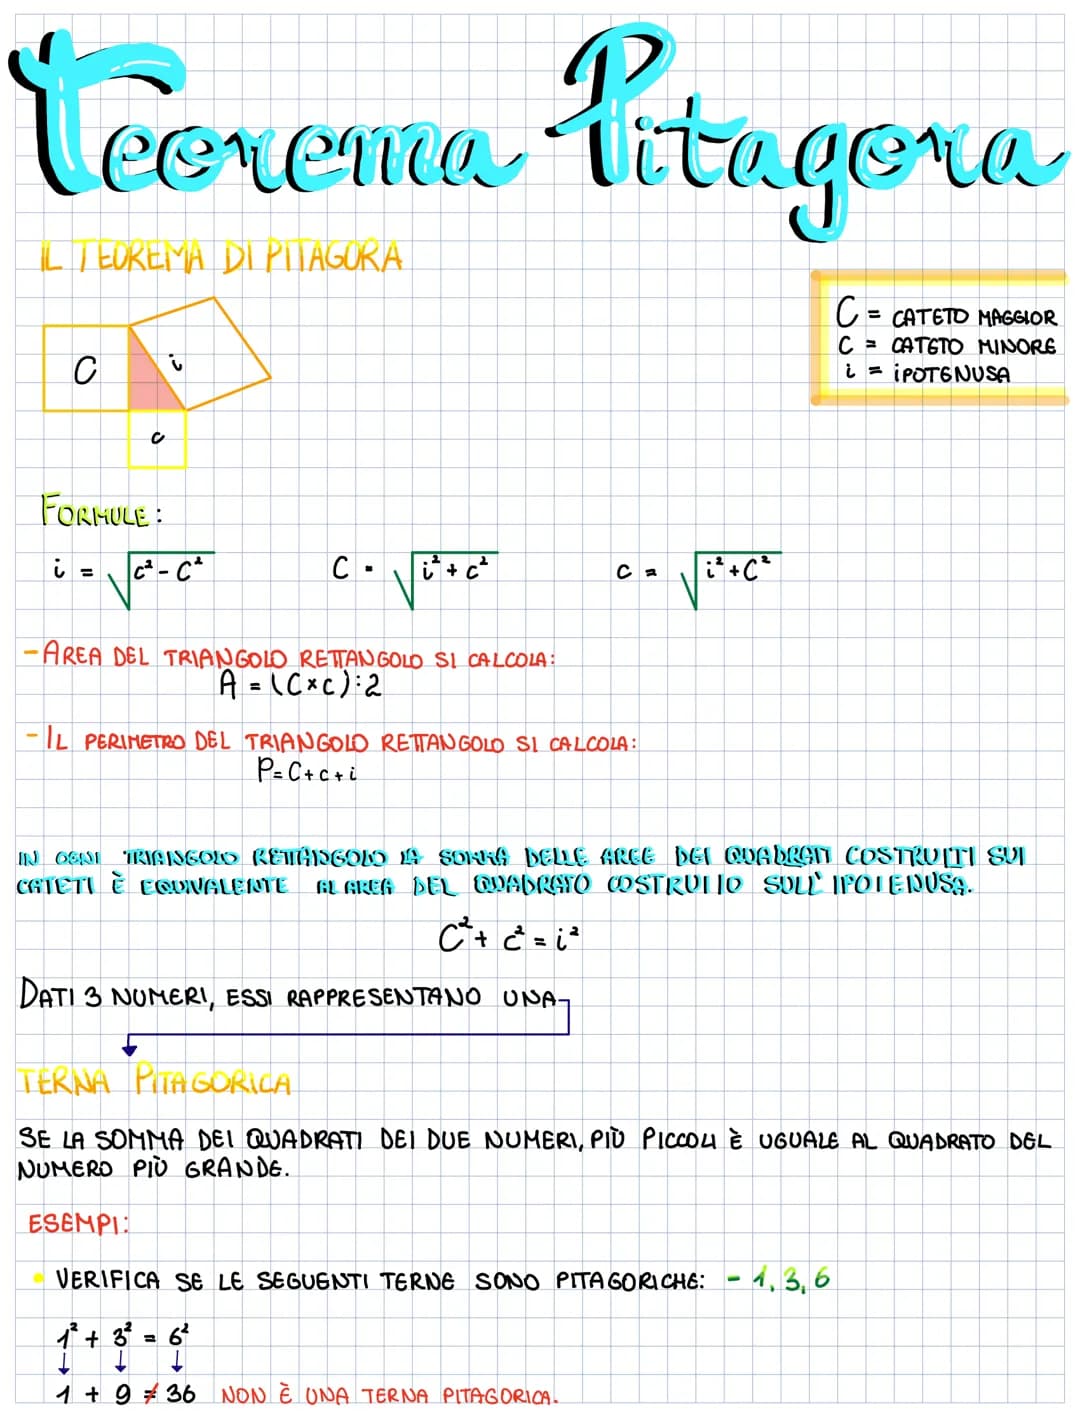 Teorema Pitagora
IL TEOREMA DI PITAGORA
C = CATETO MAGGIOR
c = CATETO MINORE
i = iPOTENUSA
C
i
c
FORMULE:
i = √c² - C²
C = √i² + c²
c = √i² + C²
- AREA DEL TRIANGOLO RETTANGOLO SI CALCOLA:
A = (C×c):2
- IL PERIMETRO DEL TRIANGOLO RETTANGOLO SI CALCOLA:
P= C + c + i
IN OGNI TRIANGOLO RETTANGOLO LA SOMMA DELLE AREE DEI QUADRATI COSTRUITI SUI
CATETI È EQUIVALENTE AL AREA DEL QUADRATO COSTRUITO SULL' IPOTENUSA.
C² + c² = i²
DATI 3 NUMERI, ESSI RAPPRESENTANO UNA
TERNA PITAGORICA
SE LA SOMMA DEI QUADRATI DEI DUE NUMERI, PIÙ PICCOLI È UGUALE AL QUADRATO DEL
NUMERO PIÙ GRANDE.
ESEMPI:
• VERIFICA SE LE SEGUENTI TERNE SONO PITAGORICHE: - 1, 3, 6
1² + 3² = 6²
↓ ↓ ↓
1 + 9 ≠ 36 NON È UNA TERNA PITAGORICA.